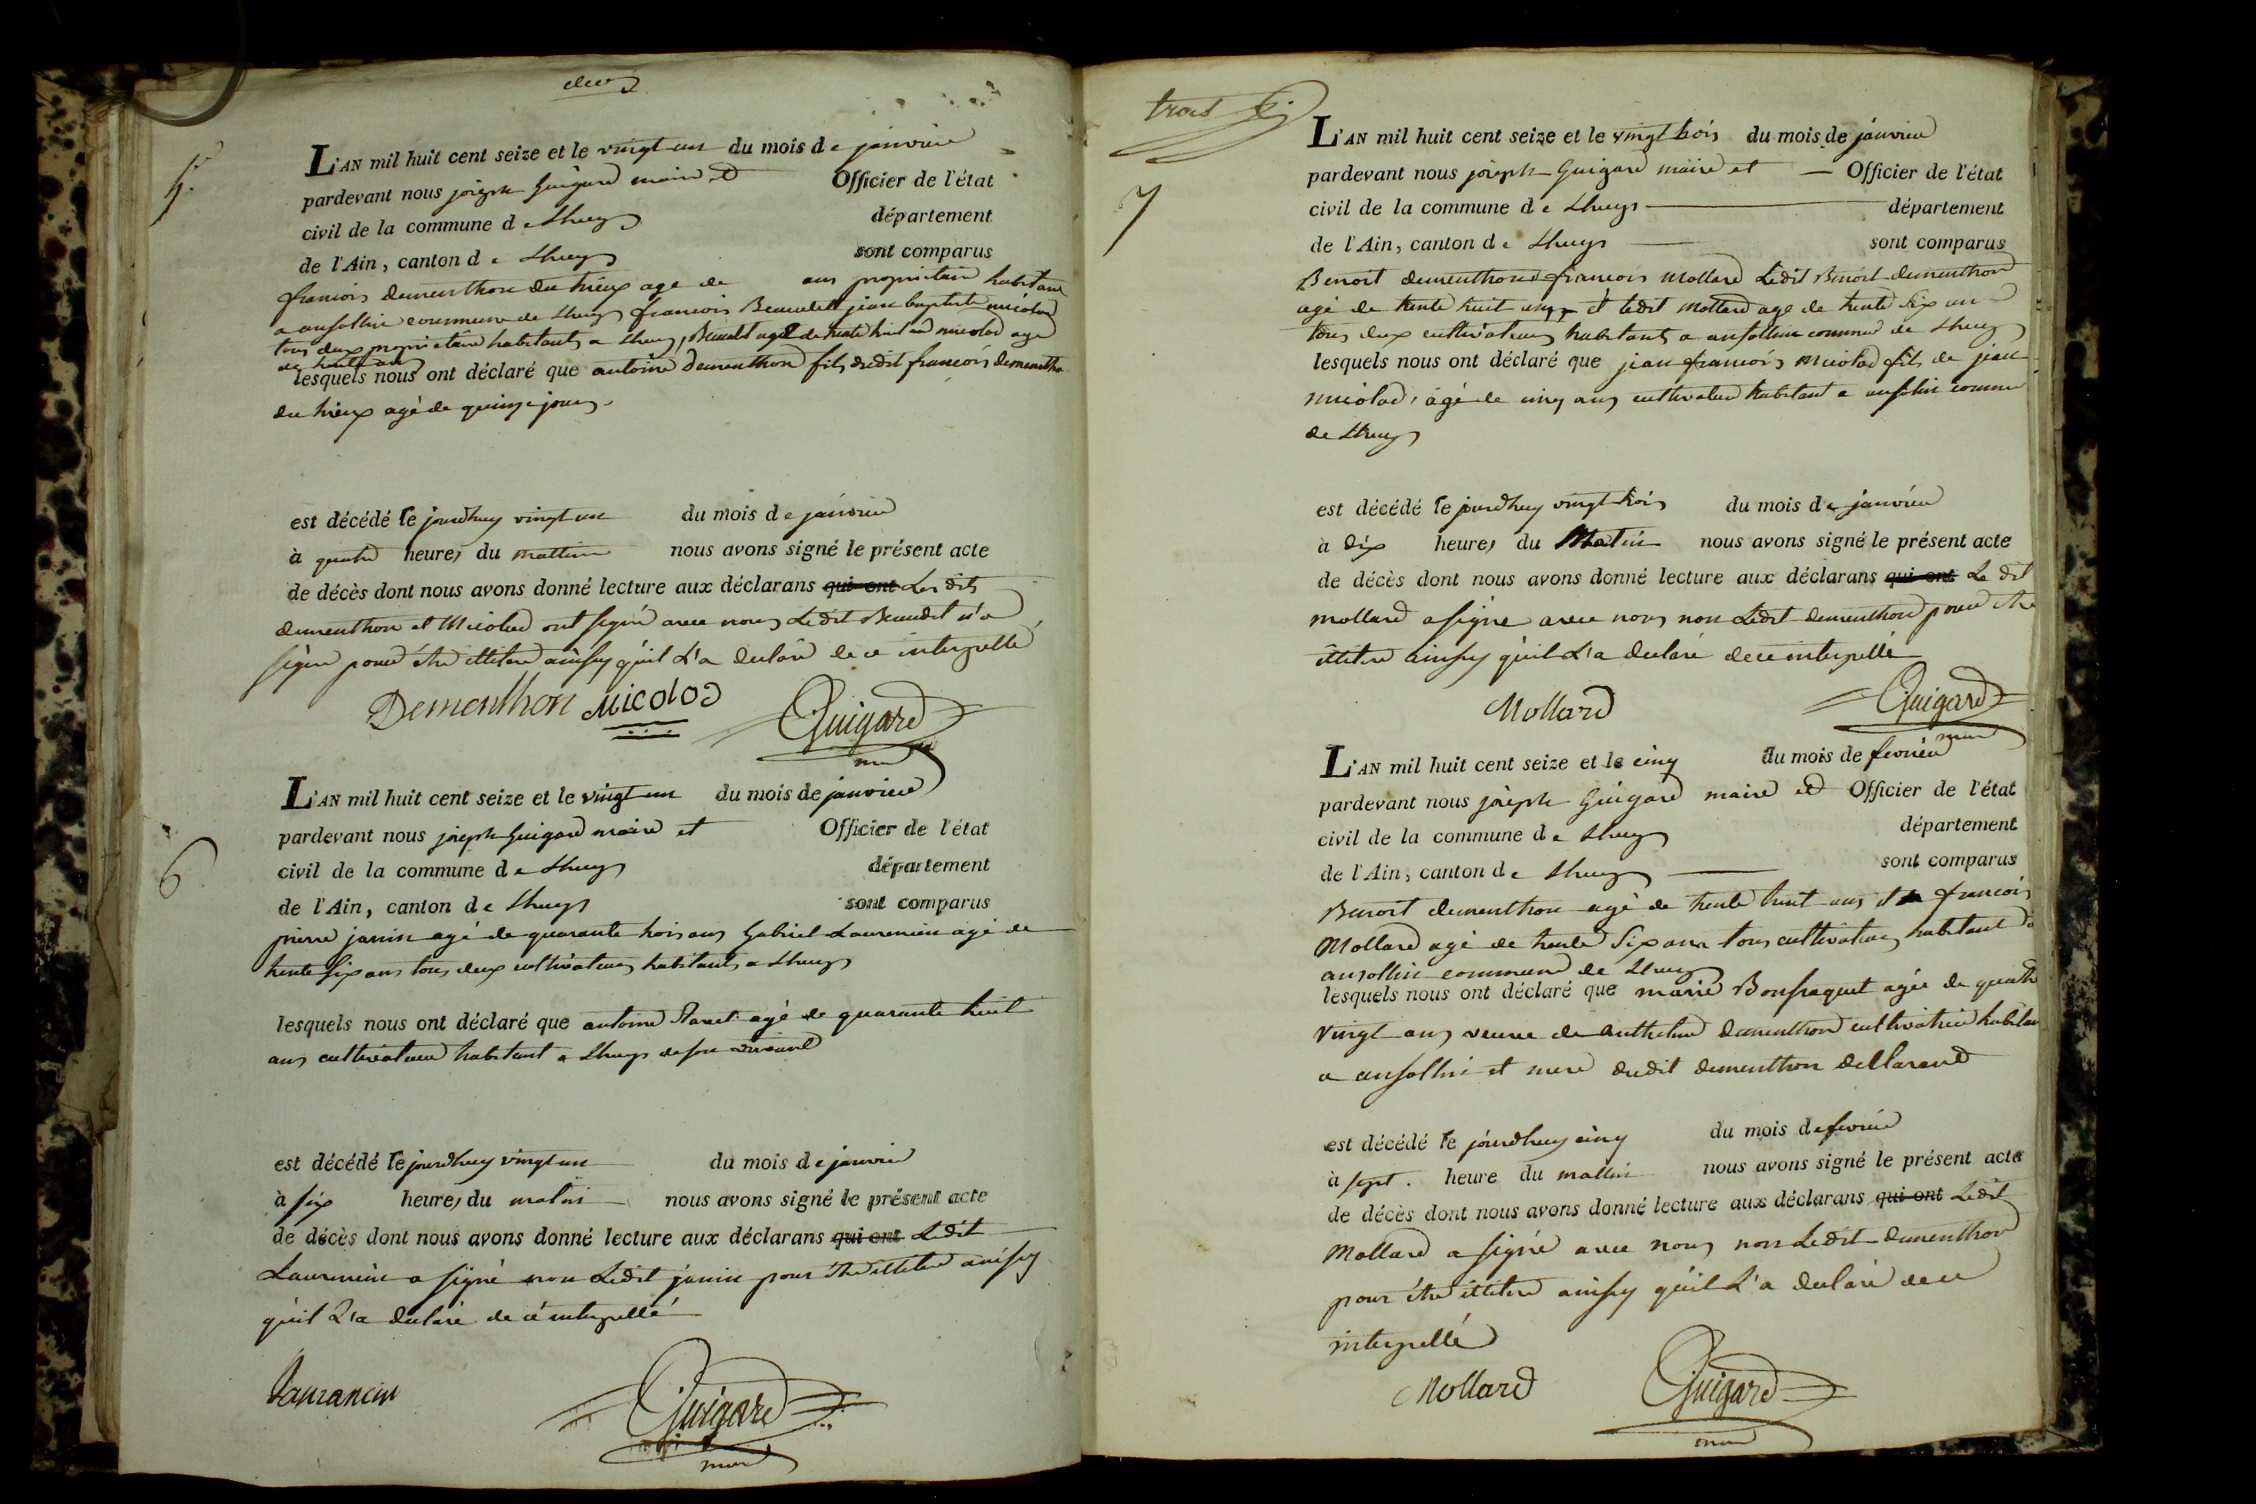 deux
5.
L'AN mil huit cent seize et le vingt un du mois de janvier
pardevant nous joseph Guigard maire et Officier de l'état
civil de la commune de Lhuys département
de l'Ain, canton de Lhuys sont comparus
francois dementhon du trieux age de ans proprietaire habitant
a ansollin commune de Lhuys francois Beaudet jean baptiste micolod
tous deux proprietaire habitants a Lhuys, Beaudet agé de trente huit ans micolod age
de trente ans
lesquels nous ont déclaré que antoine dementhon fils dudit francois dementhon
du trieux agé de quinze jours.
est décédé le jourdhuy vingt un du mois de janvier
à quatre heures du mattin nous avons signé le présent acte
de décès dont nous avons donné lecture aux déclarans qui ont Les dits
dementhon et Micolod ont signé avec nous Ledit Beaudet n'a
signé pour être illitere ainsy qu'il L'a declaré de ce interpellé
Dementhon Micolod Guigard
maire
6
L'AN mil huit cent seize et le vingt un du mois de janvier
pardevant nous joseph Guigard maire et Officier de l'état
civil de la commune de Lhuys département
de l'Ain, canton de Lhuys sont comparus
pierre janin agé de quarante trois ans Gabriel Laurencin agé de
trente six ans tous deux cultivateurs habitants a Lhuys
lesquels nous ont déclaré que antoine agé de quarante huit
ans cultivateur habitant a Lhuys de son vivant
est décédé le jourdhuy vingt un du mois de janvier
à six heures du matin nous avons signé le présent acte
de décès dont nous avons donné lecture aux déclarans qui ont Ledit
Laurencin a signé non Ledit janin pour être illitere ainsy
qu'il L'a declaré de ce interpellé
Laurancin Guigard
maire
trois
7
L'AN mil huit cent seize et le vingt trois du mois de janvier
pardevant nous joseph Guigard maire et Officier de l'état
civil de la commune de Lhuys département
de l'Ain, canton de Lhuys sont comparus
Benoit dementhon francois Mollard Ledit Benoit dementhon
agé de trente huit ans et ledit Mollard age de trente six ans
tous deux cultivateurs habitants a ansollin commune de Lhuys
lesquels nous ont déclaré que jean francois Micolod fils de jean
micolod, âgé de cinq ans cultivateur habitant a ansollin commune
de Lhuys
est décédé le jourdhuy vingt trois du mois de janvier
à dix heures du Matin nous avons signé le présent acte
de décès dont nous avons donné lecture aux déclarans qui ont Le dit
Mollard a signé avec nous non Ledit dementhon pour être
illitere ainsy qu'il L'a declaré de ce interpellé
Mollard Guigard
maire
L'AN mil huit cent seize et le cinq du mois de fevrier
pardevant nous joseph Guigard maire et Officier de l'état
civil de la commune de Lhuys département
de l'Ain, canton de Lhuys sont comparus
Benoit dementhon agé de trente huit ans et francois
Mollard agé de trente six ans tous cultivateurs habitant a
ansollin commune de Lhuys
lesquels nous ont déclaré que marie Bonfraquet agée de quatre
vingt ans veuve de Anthelme dementhon cultivatrice habitant
a ansollin et mere dudit dementhon déclarant
est décédé le jourdhuy cinq du mois de fevrier
à sept. heure du mattin nous avons signé le présent acte
de décès dont nous avons donné lecture aux déclarans qui ont Ledit
Mollard a signé avec nous non Ledit dementhon
pour être illitere ainsy qu'il L'a declaré de ce
interpellé
Mollard Guigard
maire